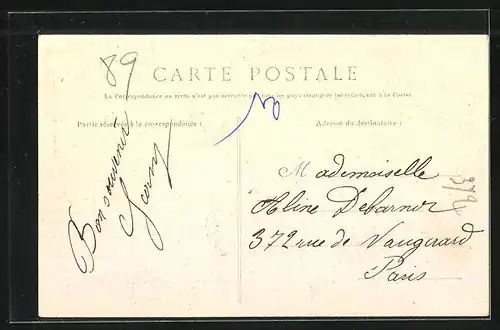 89
CARTE POSTALE
La Correspondance au recto n'est pas acceptée par tous les pays étrangers (se renseigner à la Poste)
Partie réservée à la correspondance :
Adresse du destinataire :
Bon souvenir
Mademoiselle
Aline
372 rue de Vaugirard
Paris